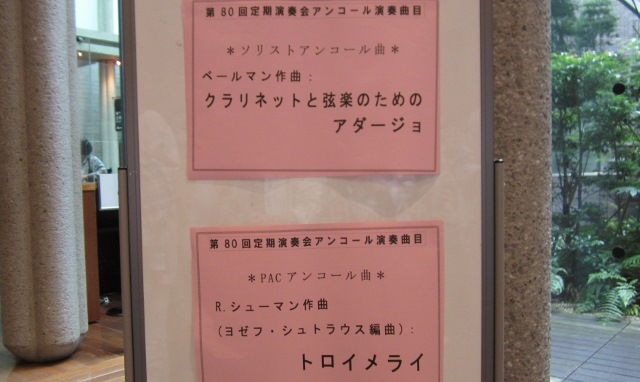 第80回定期演奏会アンコール演奏曲目
＊ソリストアンコール曲＊
ベールマン作曲：
クラリネットと弦楽のための
アダージョ
第80回定期演奏会アンコール演奏曲目
＊PACアンコール曲＊
R.シューマン作曲
（ヨゼフ・シュトラウス編曲）：
トロイメライ